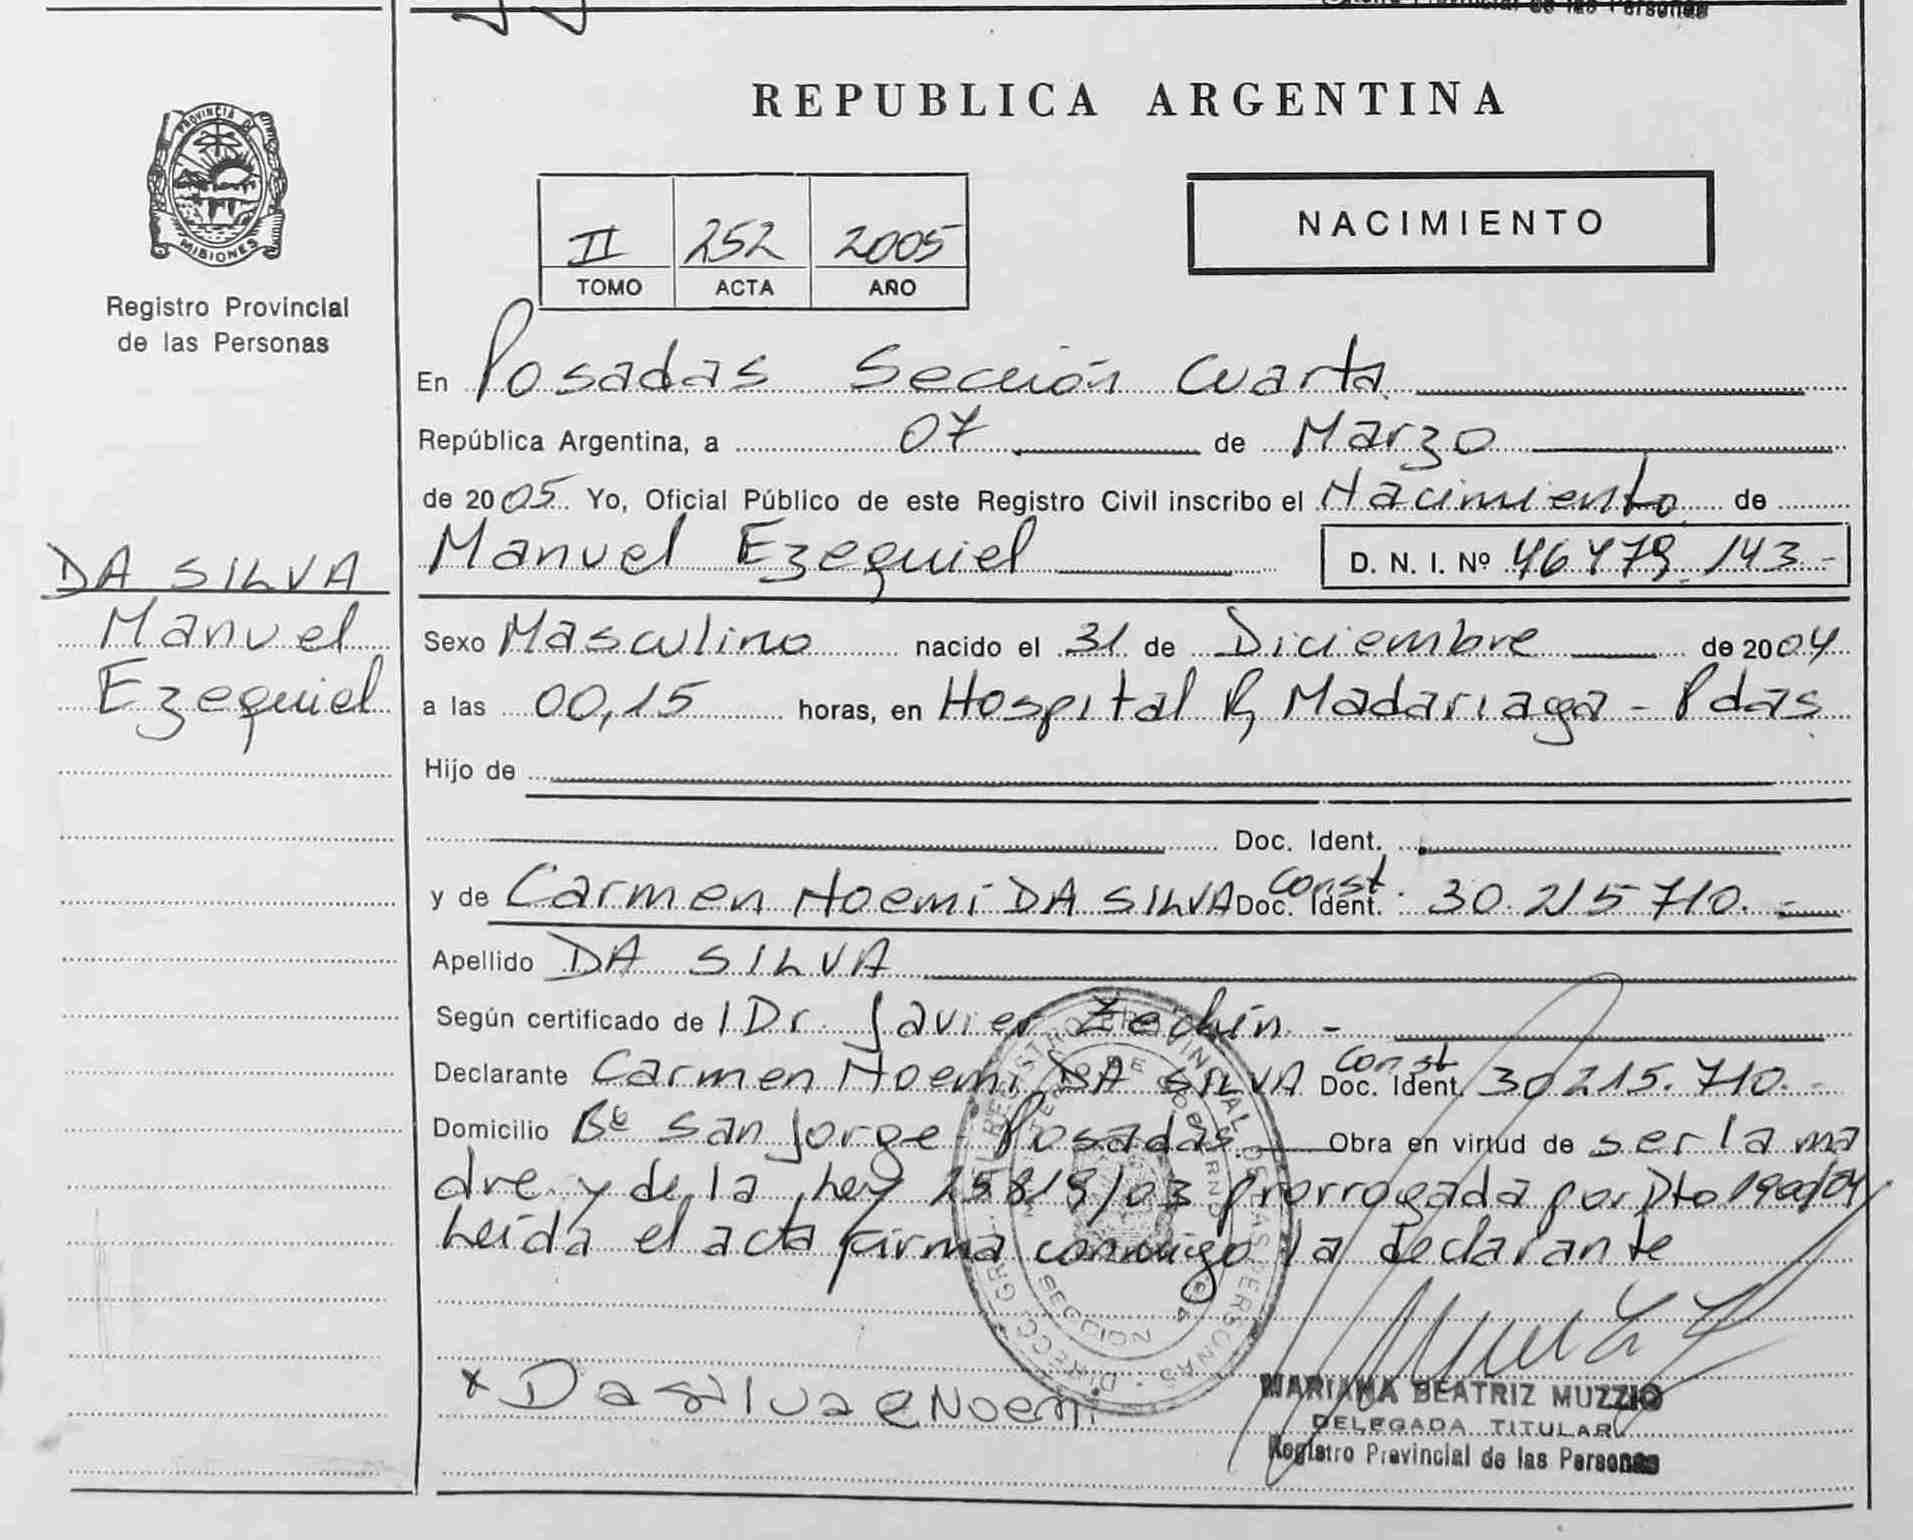 Provincial de las Personas
PROVINCIA DE
MISIONES
Registro Provincial
de las Personas
REPUBLICA ARGENTINA
NACIMIENTO
II 252 2005
TOMO ACTA AÑO
En Posadas Sección Cuarta
República Argentina, a 07 de Marzo
de 2005 Yo, Oficial Público de este Registro Civil inscribo el Nacimiento de
Manuel Ezequiel D. N. I. Nº 46.479.143-
DA SILVA
Manuel
Ezequiel
Sexo Masculino nacido el 31 de Diciembre de 2004
a las 00,15 horas, en Hospital R, Madariaga - Pdas
Hijo de
Doc. Ident.
y de Carmen Noemi DA SILVA Const. Doc. Ident. 30.215.710.-
Apellido DA SILVA
Según certificado de l Dr. Javier Zechin -
Declarante Carmen Noemi DA SILVA Const Doc. Ident. 30.215.710.-
Domicilio Bº San Jorge Posadas. Obra en virtud de ser la ma
dre y de la Ley 25819/03 prorrogada por Dto
Leida el acta firma conmigo la declarante
x Dasilva e Noemi
MARIANA BEATRIZ MUZZIO
DELEGADA TITULAR
Registro Provincial de las Personas